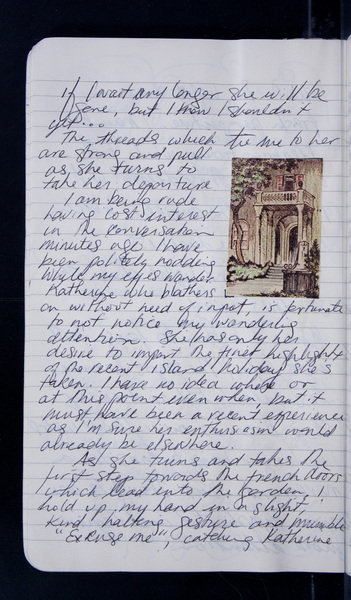 if I wait any longer she will be
gone, but I know I shouldn't
yet...
The threads which tie me to her
are strong and pull
as she turns to
take her departure
I am being rude
having lost interest
in the conversation
minutes ago I have
been politely nodding
while my eyes wander
Katherine who blathers
on without need of input, is fortunate
to not notice my wandering
attention. She has only her
desire to impart the finer highlights
of the recent island holiday she's
taken. I have no idea where or
at this point even when but it
must have been a recent experience
as I'm sure her enthusiasm would
already be elsewhere.
As she turns and takes the
first step towards the french doors
which lead into the garden, I
hold up my hand in a slight
kind halting gesture and mumble
"Excuse me", catching Katherine